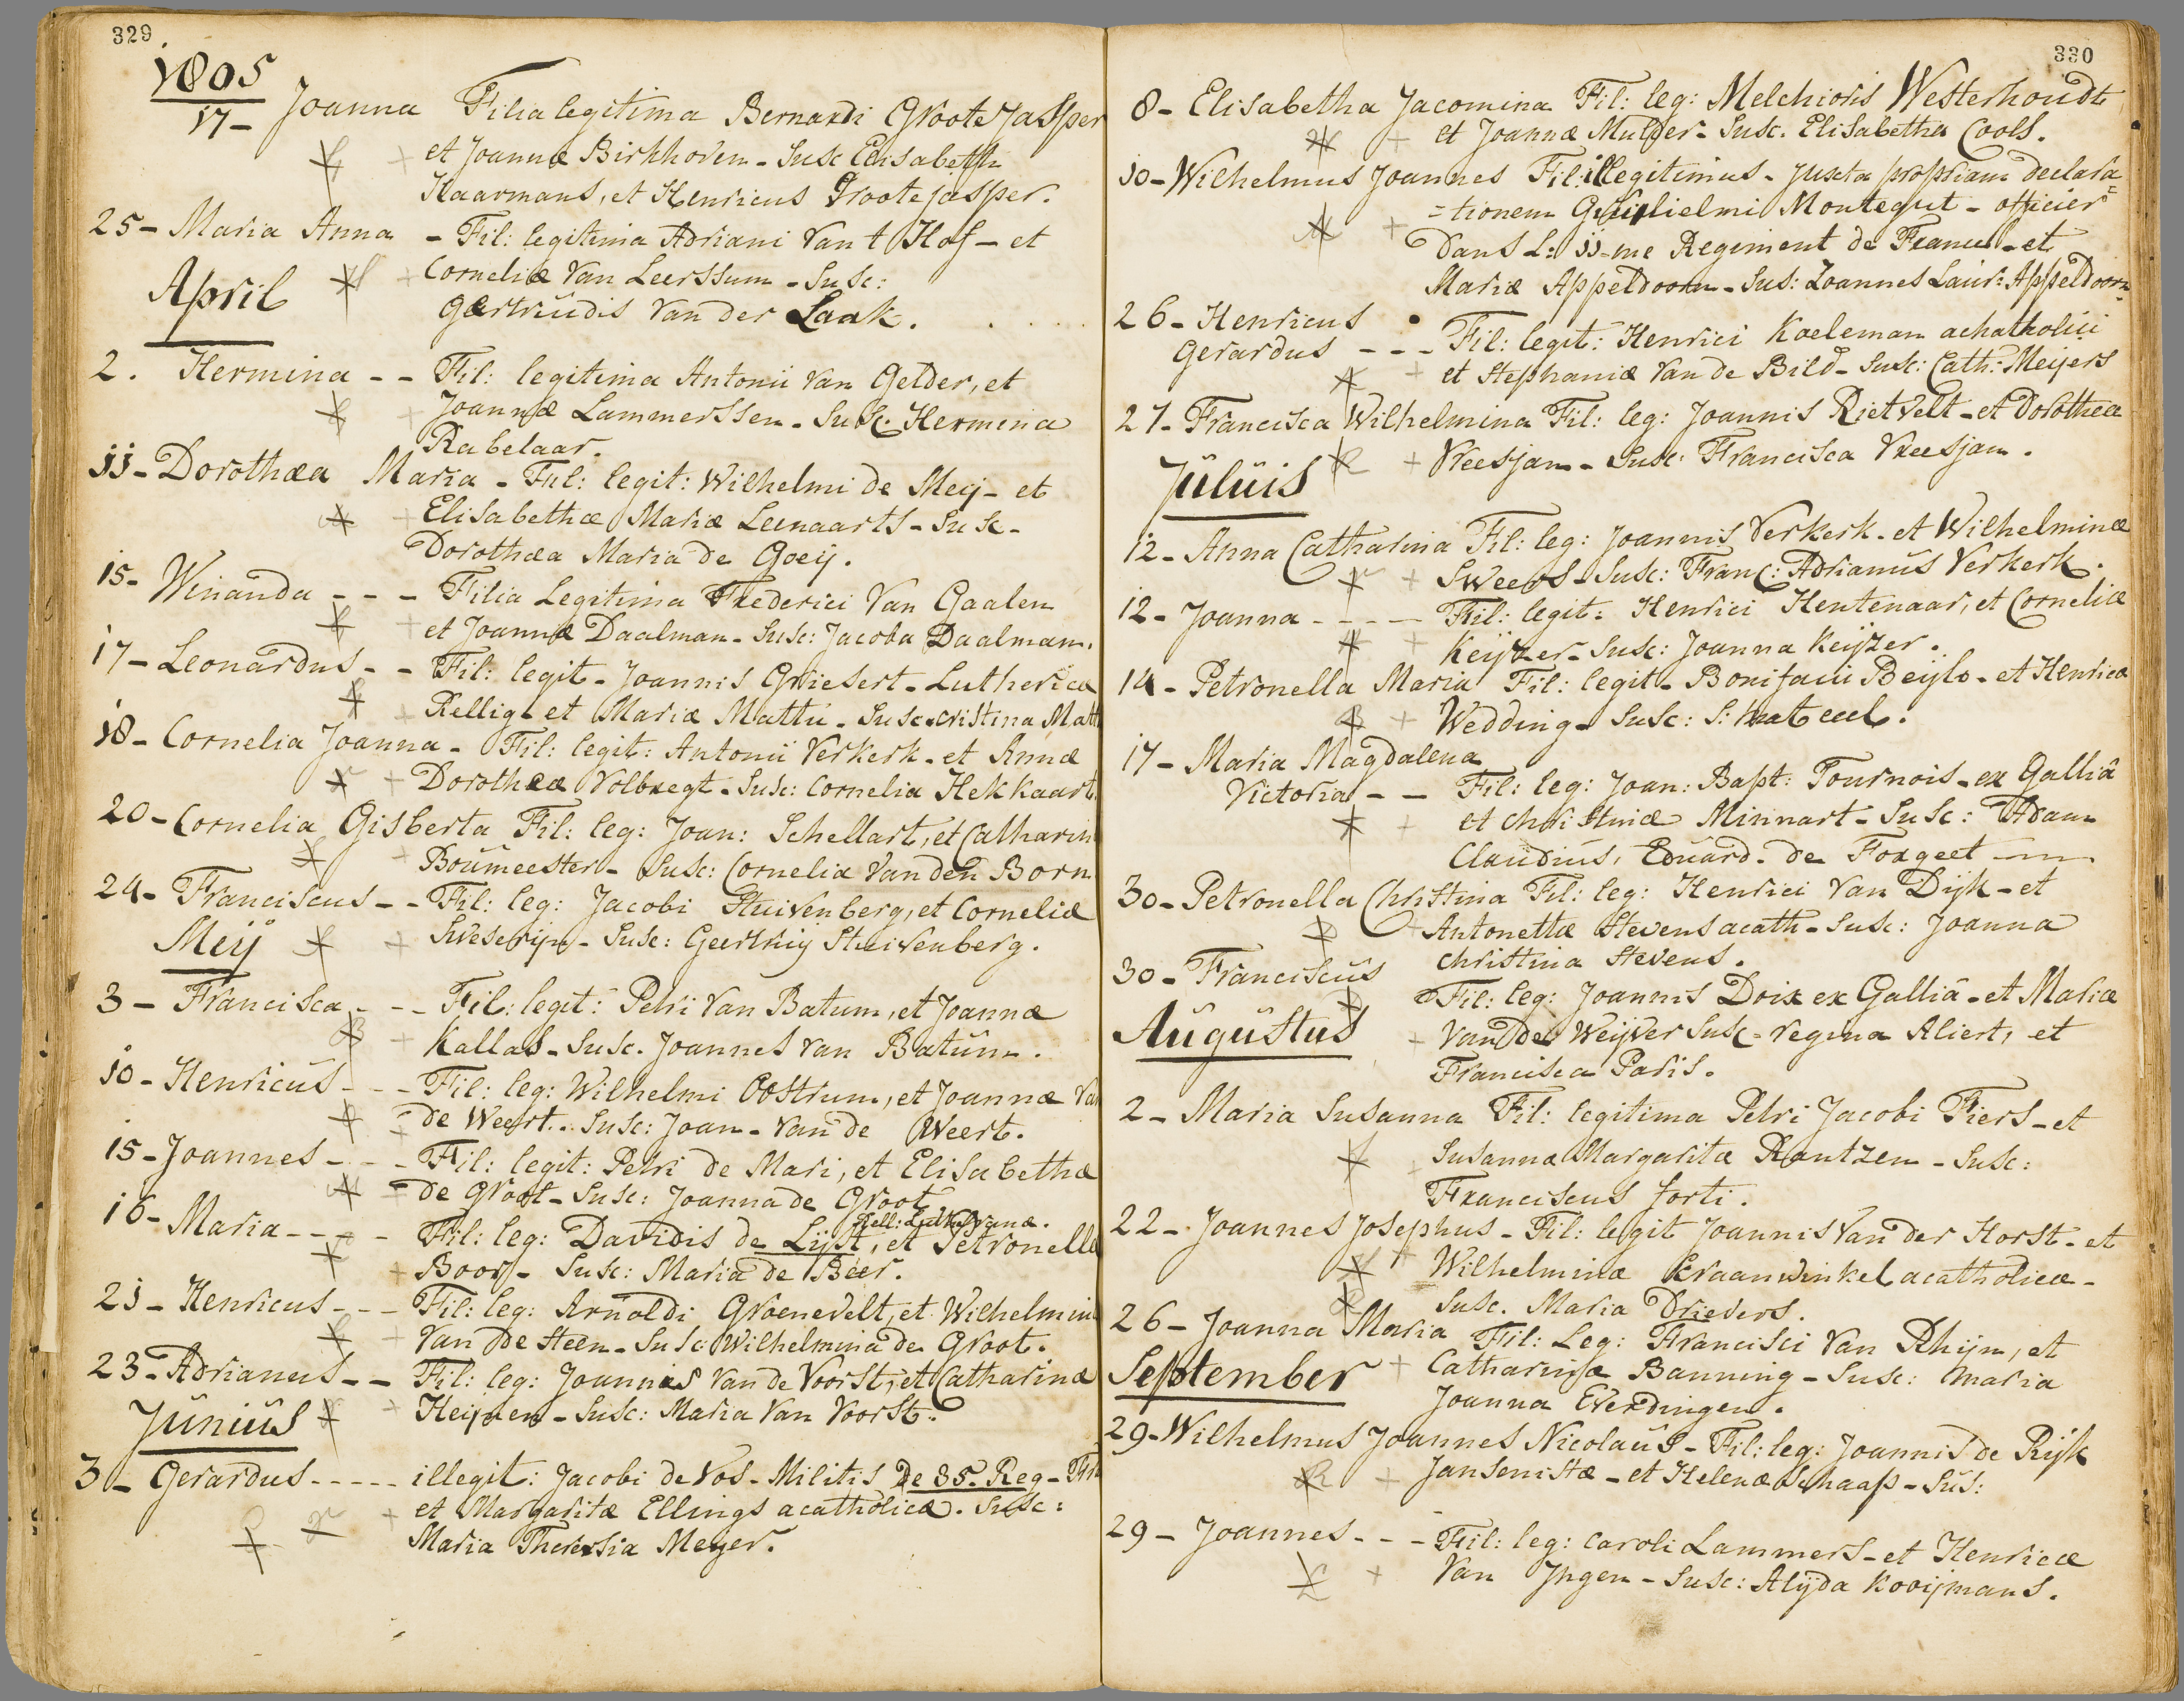 329
1805
17- Joanna Filia legitima Bernardi Groote Jasper
et Joannæ Birkhoven - Susc Elisabeth
Haarmans, et Henricus Groote jasper.
25- Maria Anna - Fil: legitima Adriani Van t Hof - et
Corneliæ Van Leerssum - Susc:
April
Gertrudis Van der Laak.
2. Hermina -- Fil: legitima Antonii Van Gelder, et
Joannæ Lammerssen - Susc. Hermina
Rabelaar.
11- Dorothæa Maria - Fil: legit: Wilhelmi de Meij - et
Elisabethæ Mariæ Leenaarts - Susc -
Dorothæa Maria de Goeij.
15- Winanda --- Filia Legitima Frederici Van Gaalen
et Joannæ Daalman - Susc: Jacoba Daalman.
17- Leonardus -- Fil: legit - Joannis Griesert - Luthericæ
Rellig - et Mariæ Mattu - Susc. cristina Matt
18- Cornelia Joanna - Fil: legit: Antonii Verkerk - et Annæ
Dorotheæ Volbregt - Susc: Cornelia Hekkaart.
20- Cornelia Gisberta Fil: leg: Joan: Schellart, et Catharin
Boumeester - Susc: Cornelia Van den Born
24- Franciscus -- Fil: leg: Jacobi Stuivenberg, et Corneliæ
Meij
Sweserijn - Susc: Geertruij Stuivenberg.
3- Francisca --- Fil: legit: Petri Van Batum, et Joannæ
Kallas - Susc. Joannes Van Batum.
10- Henricus --- Fil: leg: Wilhelmi Oostrum, et Joannæ Van
de Weert. Susc: Joan - Van de Weert.
15- Joannes --- Fil: legit: Petri de Mari, et Elisabethæ
de Groot - Susc: Joanna de Groot
Rell: Lutheranæ.
16- Maria ---- Fil: leg: Davidis de Lijst, et Petronellæ
Boor - Susc: Maria de Beer.
21- Henricus --- Fil: leg: Arnoldi Groenevelt, et Wilhelmin
Van De Steen - Susc: Wilhelmina de Groot.
23- Adrianus -- Fil: leg: Joannis Van de Voorst, et Catharinæ
Junius
Heijnen - Susc: Maria Van Voorst.
3- Gerardus ---- illegit: Jacobi de Vos - Militis De 35. Reg -
et Margaritæ Ellings acatholicæ. Susc:
Maria Theressia Meyer.
330
8- Elisabetha Jacomina Fil: leg: Melchioris Westerhoudt
et Joannæ Mulder - Susc. Elisabetha Cools.
10- Wilhelmus Joannes Fil: illegitimus - Juxta propriam declara=
=tionem Guilielmi Montegut - officier
Dans L: 11-me Regiment de France - et
Mariæ Appeldoorn - Sus: Joannes Laur: Appeldoorn
26- Henricus
Gerardus --- Fil: legit: Henrici Kaeleman achatholici
et Stephaniæ Van de Bild - Susc: Cath: Meijers
27- Francisca Wilhelmina Fil: leg: Joannis Rietvelt - et Dorotheæ
Vreesjan - Susc: Francisca Vreesjan.
Juluis
12- Anna Catharina Fil: leg: Joannis Verkerk - et Wilhelminæ
Sweers - Susc: Franc: Adrianus Verkerk.
12- Joanna ---- Fil: legit: Henrici Hentenaar, et Corneliæ
Keijzer - Susc: Joanna Keijzer.
14- Petronella Maria Fil: legit - Bonifacii Beijlo - et Henricæ
Wedding - Susc:
17- Maria Magdalena
Victoria -- Fil: leg: Joan: Bapt: Tournois - ex Galliâ
et Christinæ Minnart - Susc: Adam
Claudius, Eduard. de Forgeet
30- Petronella Christina Fil: leg: Henrici Van Dijk - et
Antonettæ Stevens acath - Susc: Joanna
Christina Stevens.
30- Franciscus
Fil: leg: Joannis Droix ex Galliâ - et Mariæ
Augustus
Van der Weijver Susc - regina Aliert, et
Francisca Paris.
2- Maria Susanna Fil: legitima Petri Jacobi Fiers - et
Susannæ Margaritæ Rantzen - Susc:
Franciscus forti.
22- Joannes Josephus - Fil: legit Joannis Van der Horst - et
Wilhelminæ Kraanwinkel acatholicæ -
Susc. Maria Drievers.
26- Joanna Maria Fil: Leg: Francisci Van Rhijn, et
September
Catharinæ Banning - Susc: Maria
Joanna Everdingen.
29- Wilhelmus Joannes Nicolaus - Fil: leg: Joannis de Rijk
Jansenistæ - et Helenæ Schaap - Sus:
29- Joannes --- Fil: leg: Caroli Lammers - et Henricæ
Van Jngen - Susc: Alijda Kooijmans.